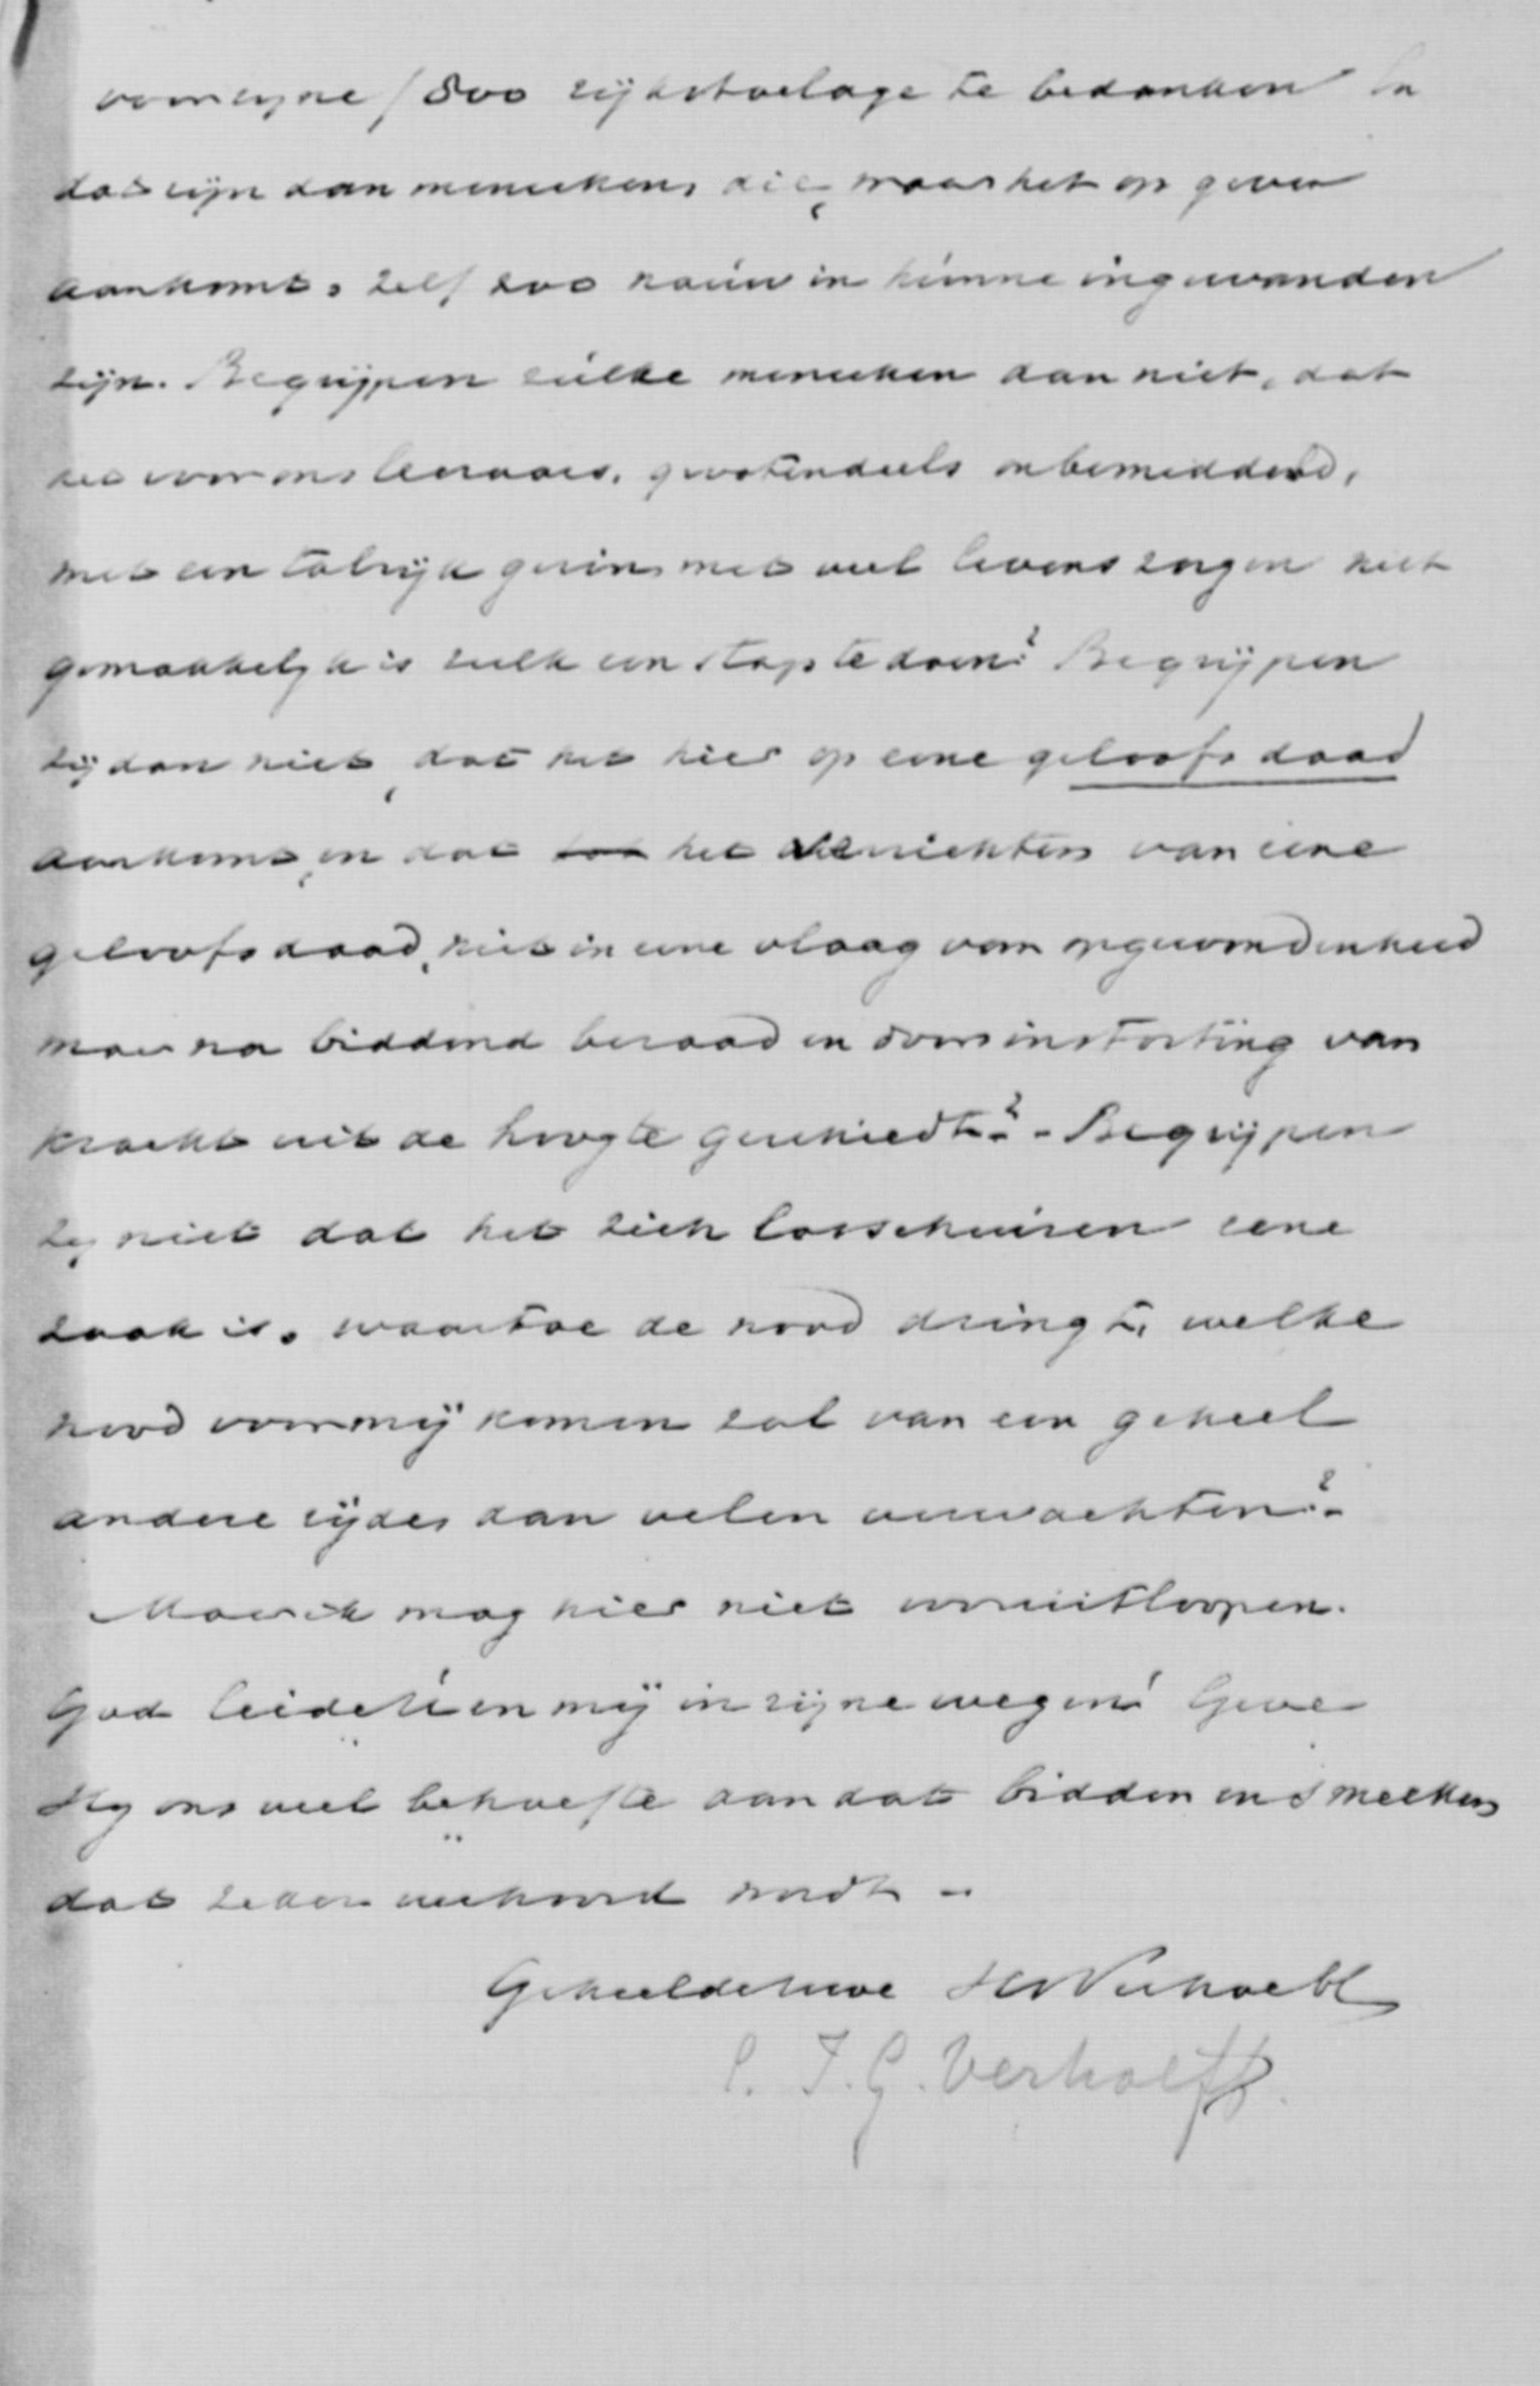 voor zijne ƒ 800 rijkstoelage te bedanken En
dat zijn dan menschen, die, waar het op geven
aankomt, zelf zoo nauw in hunne ingewanden
zijn. Begrijpen zulke menschen dan niet, dat
het voor ons leeraars, grootendeels onbemiddeld,
met een talrijk gezin, met veel levenszorgen niet
gemakkelijk is zulk een stap te doen? Begrijpen
zij dan niet, dat het hier op eene geloofsdaad
aankomt, en dat het verrichten van eene
geloofsdaad, niet in eene vlaag van opgewondenheid
maar na biddend beraad en door instorting van
kracht uit de hoogte geschiedt? - Begrijpen
zij niet dat het zich losscheuren eene
zaak is, waartoe de nood dringt, welke
nood voor mij komen zal van een geheel
andere zijde, dan velen verwachten? -
Maar ik mag hier niet vooruitloopen.
God leide U en mij in zijne wegen! Geve
Hij ons veel behoefte aan dat bidden en smeeken
dat zeker verhoord wordt -
Geheel de Uwe Verhoeff
C. J. G. Verhoeff.